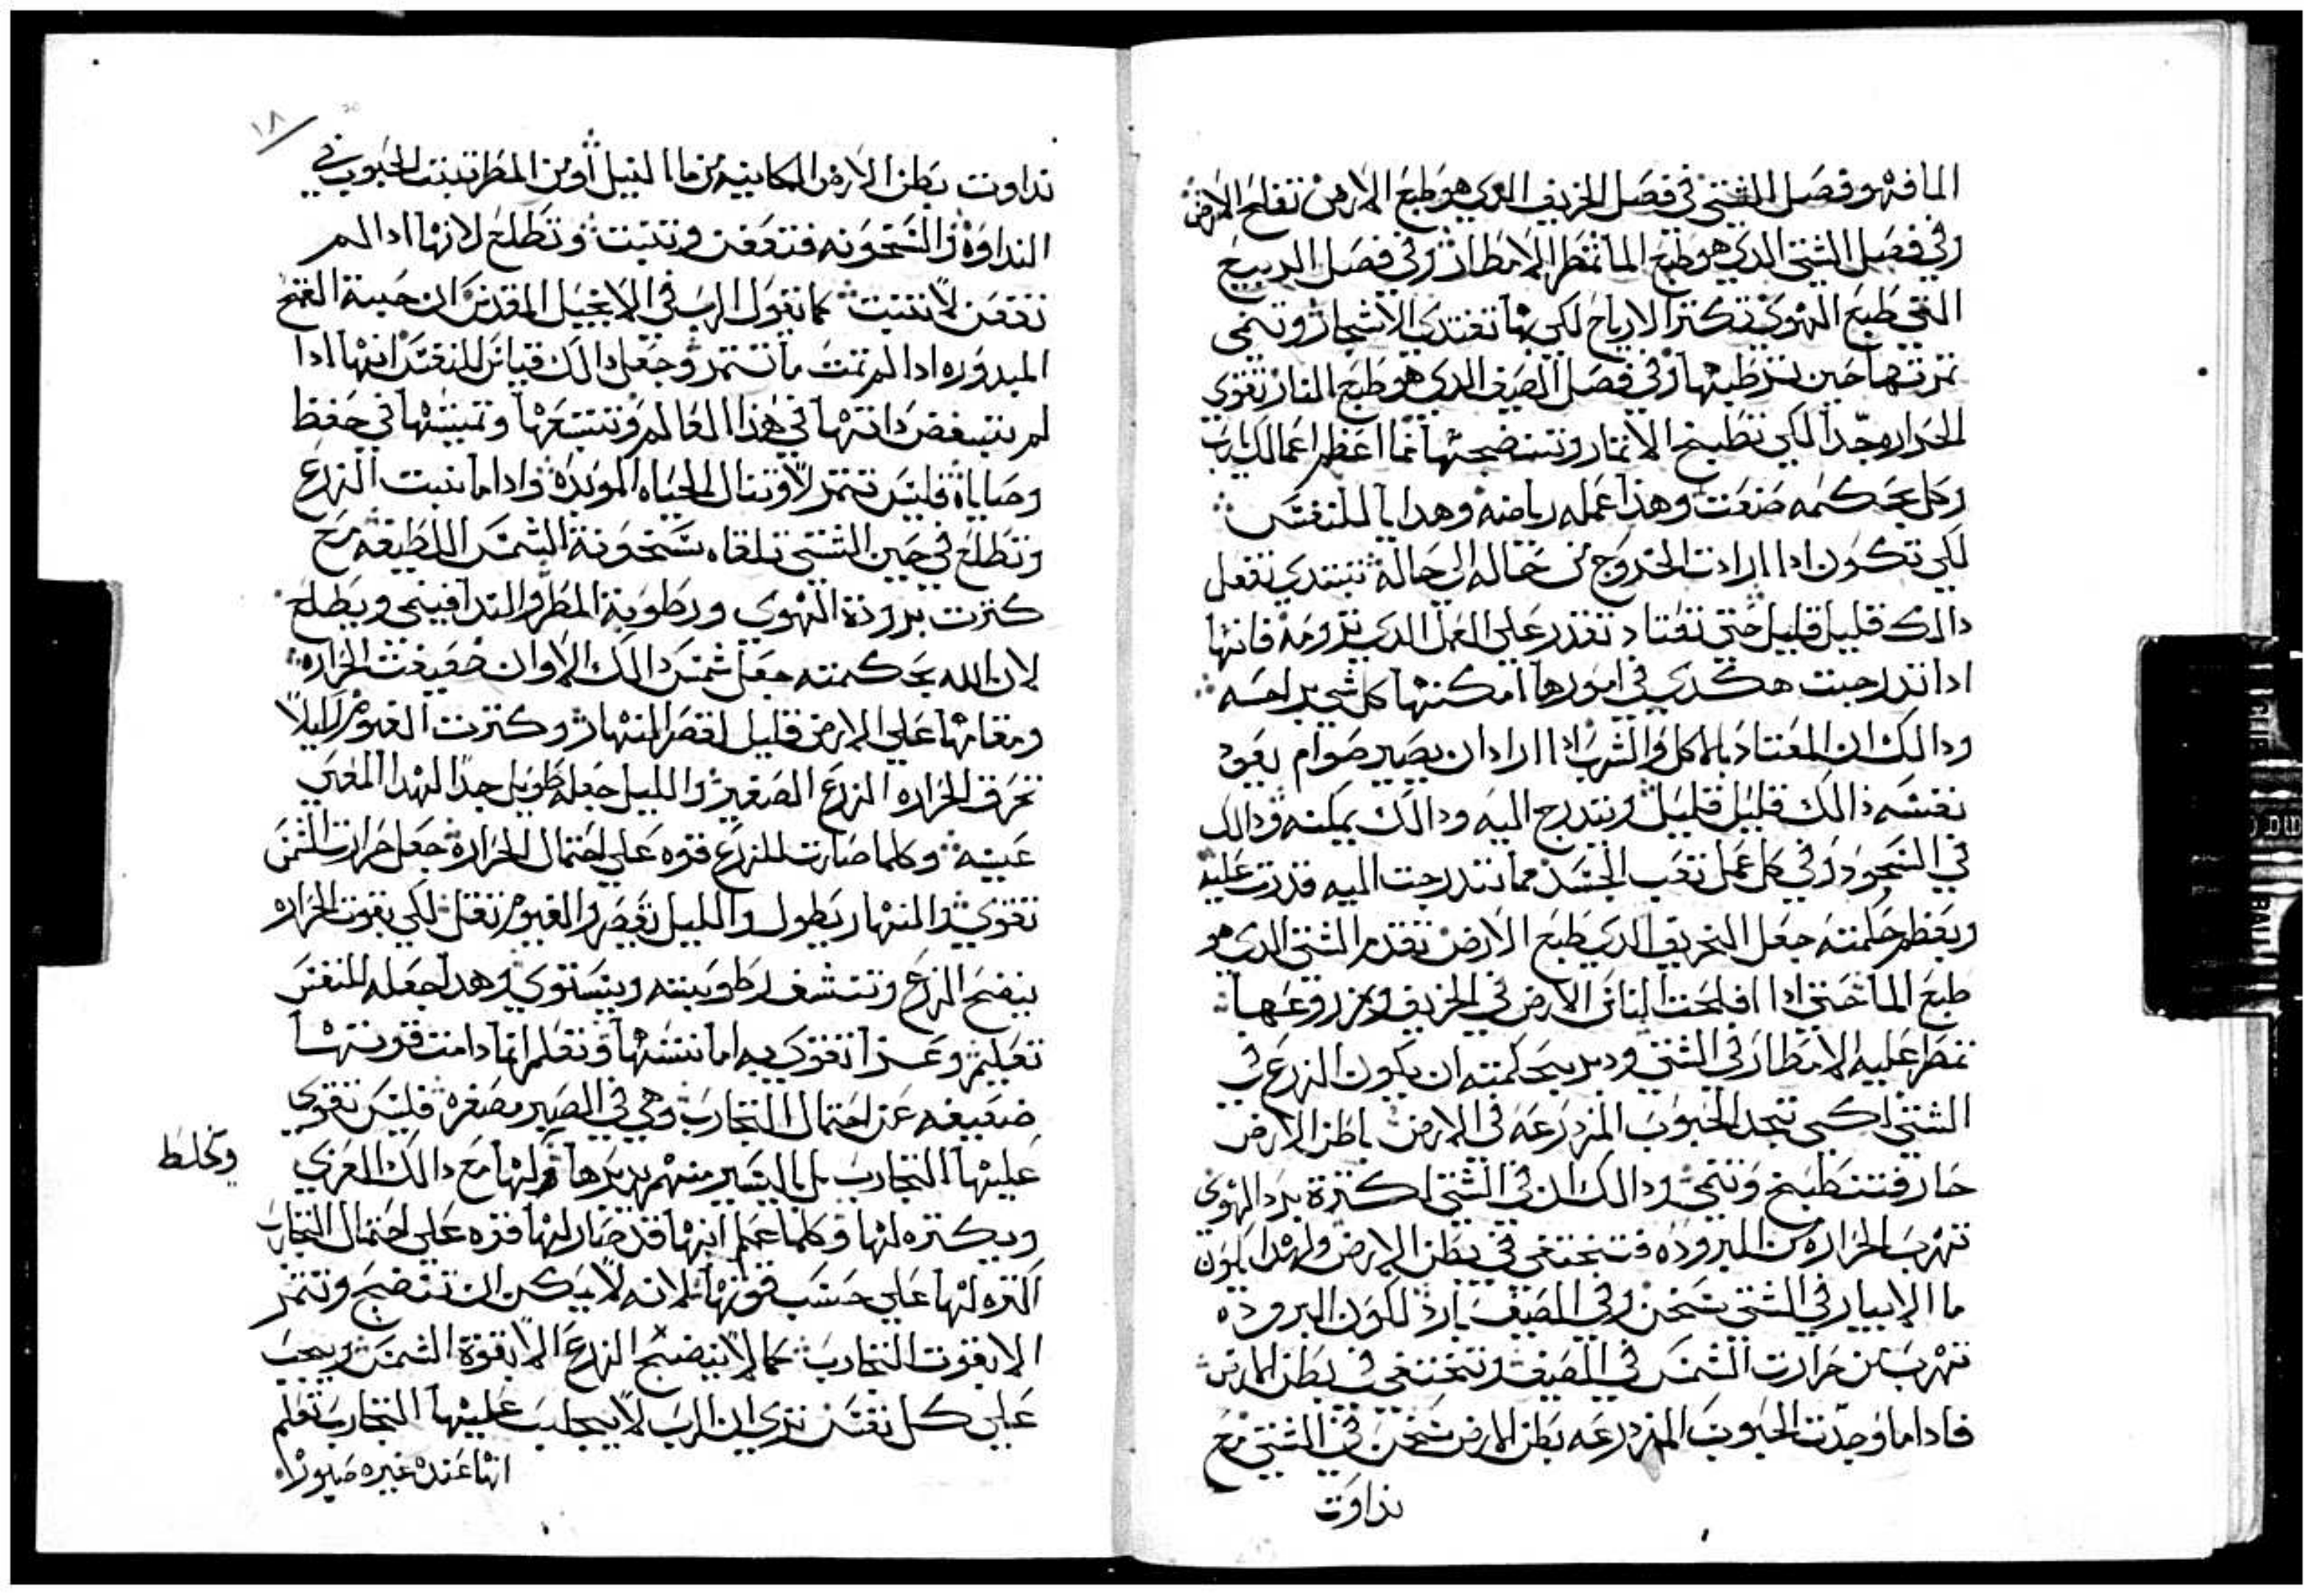 المافه وفصل الشتى في فصل الخريف الدي هو طبع الارض تفلح الارض
وفي فصل الشتى الدي هو طبع الما تمطر الامطار وفي فصل الربيع
التي طبع الهوى تكتر الارياح لكي بها تغتدي الاشجار وتنمى
تمرتها حين ترطبها وفي فصل الصيف الدي هو طبع النار تقوى
الحراره جدا لكي تطبخ الاتمار وتنضجها فما اعظم اعمالك يارب
وكل بحكمه صنعت وهذا عمله رياضه وهدايا للنفس
لكي تكون ادا ارادت الخروج من حاله الى حاله تبتدي تفعل
دالك قليل قليل حتى تعتاد تقدر على العمل الدي ترومه فانها
ادا تدرجت هكدي في امورها امكنها كل شي براحه
ودالك ان المعتاد بالاكل والشرب ادا اراد ان يصير صوام يعود
نفسه ذالك قليل قليل وتدرج اليه ودالك يمكنه ودالك
في السجود وفي كل عمل تعب الجسد مما تتدرجت اليه قدرت عليه
وبعظم حكمته جعل الخريف الدي طبع الارض تقدم الشتى الدي هو
طبع الما حتى ادا افلحت الناس الارض في الخريف وبزروعها
تمطر عليه الامطار في الشتى ودبر بحكمته ان يكون الزرع في
الشتى لكي تجد الحبوب المزدرعه في الارض باطن الارض
حار فتنطبخ وتنمى ودالك ان في الشتى لكترة برد الهوى
تهرب الحراره من البروده فتختفي في بطن الارض ولهدا يكون
ما الابيار في الشتى سخن وفي الصيف بارد لكون البروده
تهرب من حرارت الشمس في الصيف وتختفي في بطن الارض
فاداما وجدت الحبوب المزدرعه بطن الارض سخن في الشتى مع
نداوت
١٨
نداوت بطن الارض الكاينه من ما النيل او من المطر تنبت الحبوب في
النداوه والسخونه فتعفن وتنبت وتطلع لانها ادا لم
تعفن لا تنبت كما يقول الرب في الانجيل المقدس ان حبة القمح
المبدوره ادا لم تمت ما تتمر وجعل دالك قياس للنفس انها ادا
لم تبغض داتها في هذا العالم وتتبعها وتميتها في حفظ
وصاياه فليس تتمر ولا تنال الحياه الموبده واداما نبت الزرع
وتطلع في حين الشتى تلقاه سخونة الشمس اللطيفه مع
كترت برودة الهوى ورطوبة المطر والندا فينمى ويطلع
لان الله بحكمته جعل شمس دالك الاوان ضعيفت الحراره
ومقامها على الارض قليل لقصر النهار وكترت الغيوم ليلا
تحرق الحراره الزرع الصغير والليل جعله طويل جدا لهدا المعنى
عينه وكلما صارت للزرع قوه على احتمال الحراره جعل حرارت الشمس
تقوى والنهار يطول والليل يقصر والغيوم تقل لكي بقوت الحراره
ينضج الزرع وتنشف رطوبته ويستوى وهدا جعله للنفس
تعليم وعزا تتقوى به اما ننسها وتعلم انما دامت قوتها
ضعيفه عن احتمال التجارب وهي في الصبر مصغره فليس تقوى
عليها التجارب بل باليسير منهم يدبرها ولها مع دالك العزي
وتخلط
ويكتره لها وكلما علم انها قد صار لها قوه على احتمال التجارب
اكتره لها على حسب قوتها لانه لا يمكن ان تنضج وتتمر
الا بقوت التجارب كما لا ينضج الزرع الا بقوة الشمس ويجب
على كل نفس ترى ان الرب لا يجلب عليها التجارب تعلم
انها عنده غيره صبوره